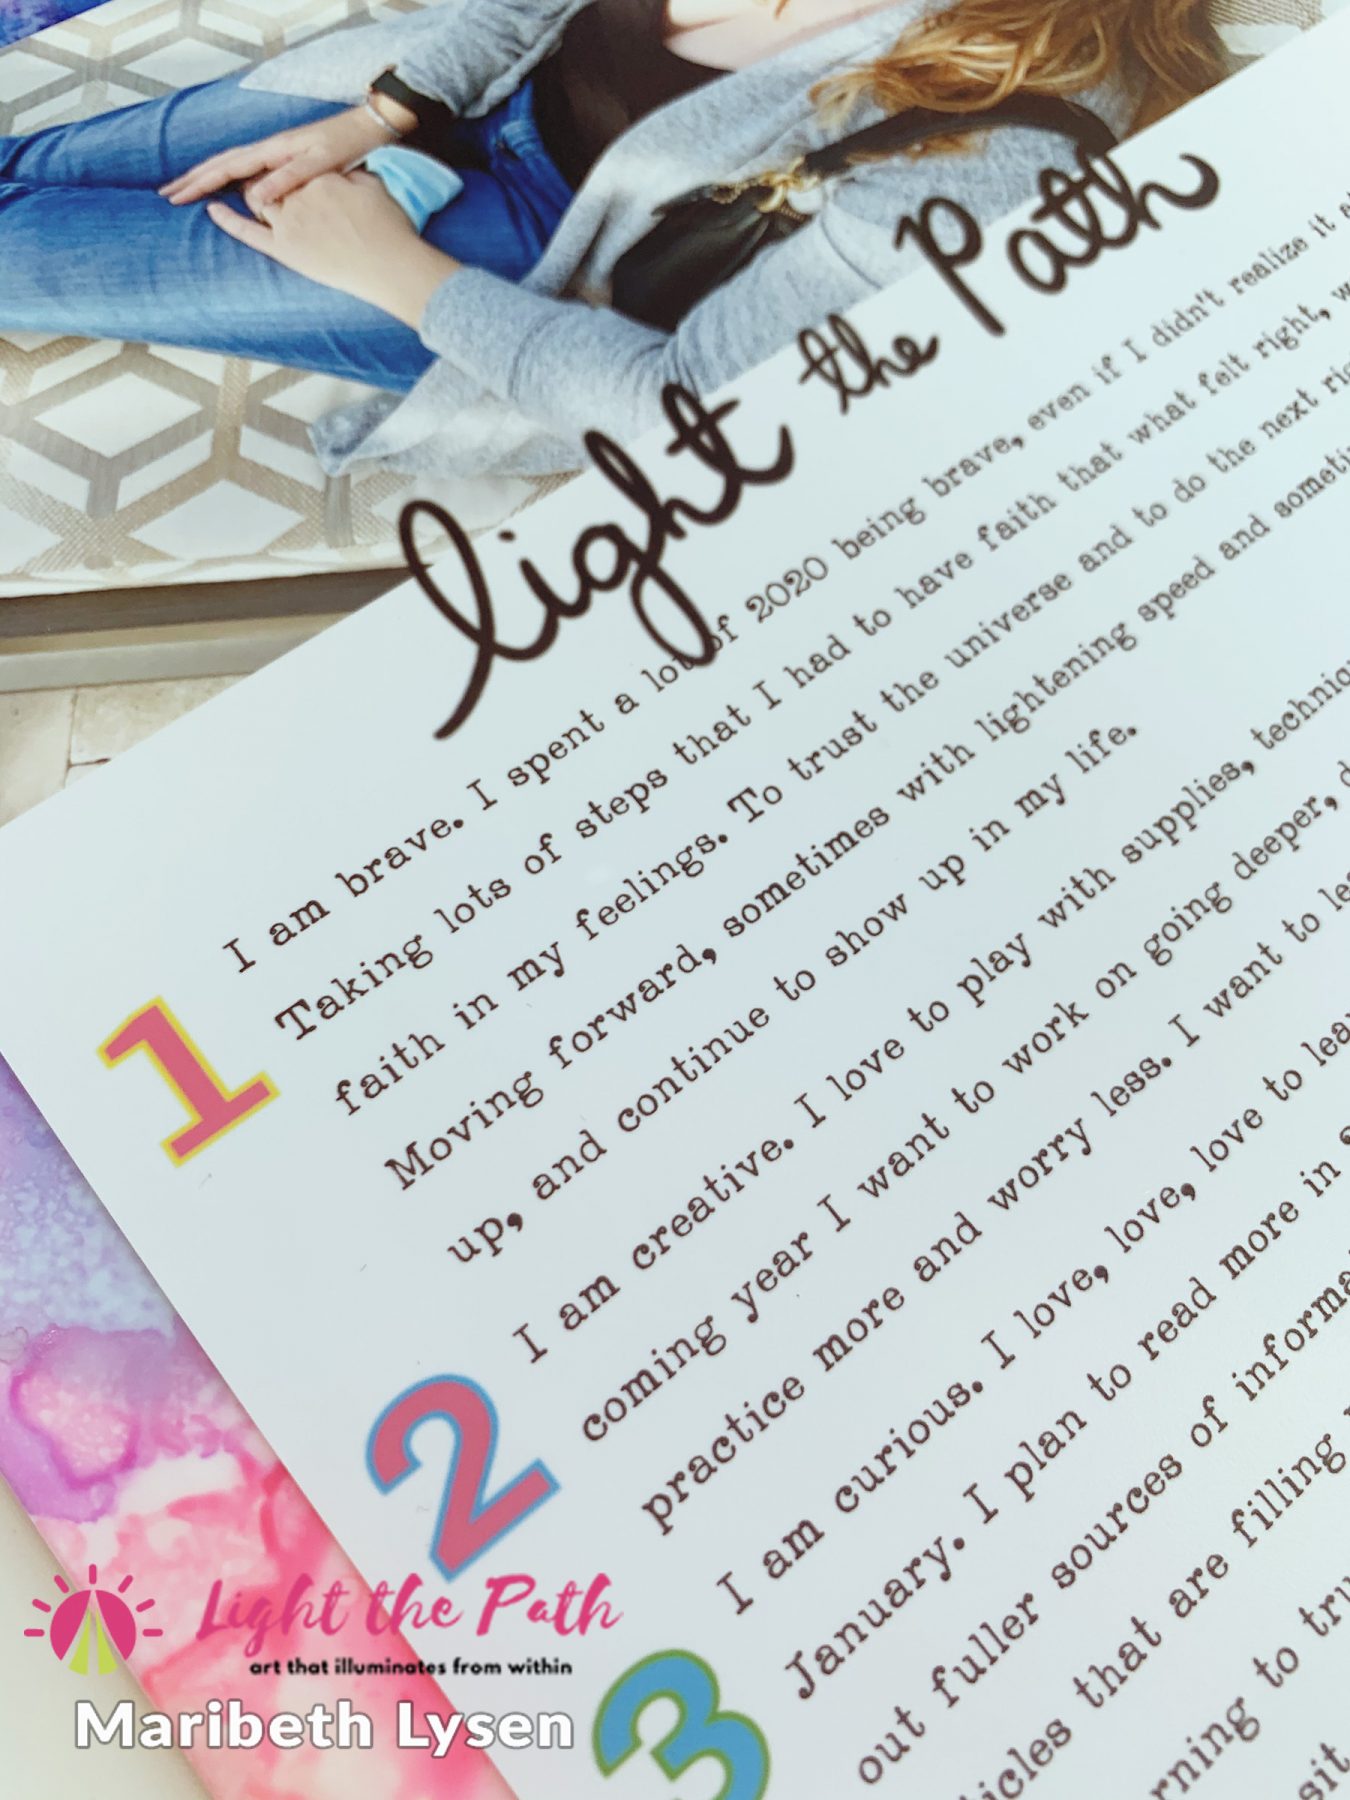 light the Path
I am brave. I spent a lot of 2020 being brave, even if I didn't realize it
Taking lots of steps that I had to have faith that what felt right,
faith in my feelings. To trust the universe and to do the next
Moving forward, sometimes with lightening speed and
up, and continue to show up in my life.
1
I am creative. I love to play with supplies,
coming year I want to work on going deeper,
practice more and worry less. I want to
2
I am curious. I love, love, love, love to
January. I plan to read more in
out fuller sources of
that are filling
to
3
Light the Path
art that illuminates from within
Maribeth Lysen